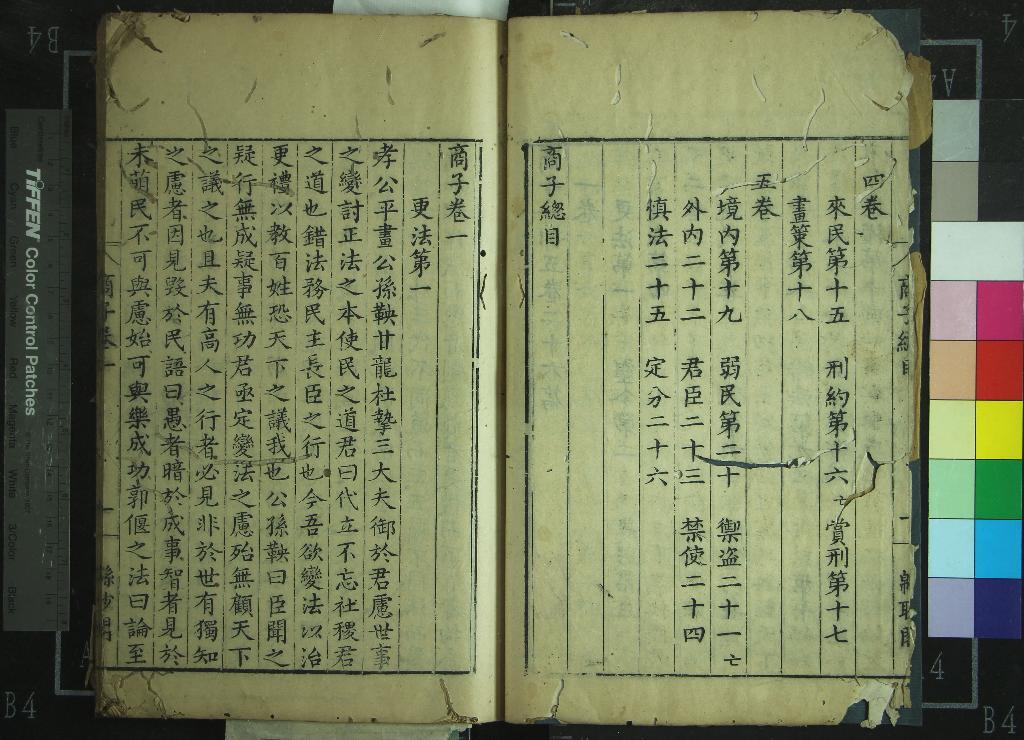 四卷
來民第十五 刑約第十六亡 賞刑第十七
畫策第十八
五卷
境內第十九 弱民第二十 禦盜二十一亡
外內二十二 君臣二十三 禁使二十四
慎法二十五 定分二十六
商子總目
商子卷一
更法第一
孝公平畫公孫鞅甘龍杜摯三大夫御於君慮世事
之變討正法之本使民之道君曰代立不忘社稷君
之道也錯法務民主長臣之行也今吾欲變法以治
更禮以教百姓恐天下之議我也公孫鞅曰臣聞之
疑行無成疑事無功君亟定變法之慮殆無顧天下
之議之也且夫有高人之行者必見非於世有獨知
之慮者因見毀於民語曰愚者暗於成事智者見於
未萌民不可與慮始可與樂成功郭偃之法曰論至
商子卷一
TIFFEN Color Control Patches
Blue Cyan Green Yellow Red Magenta White 3/Color Black
B4
B4
B4